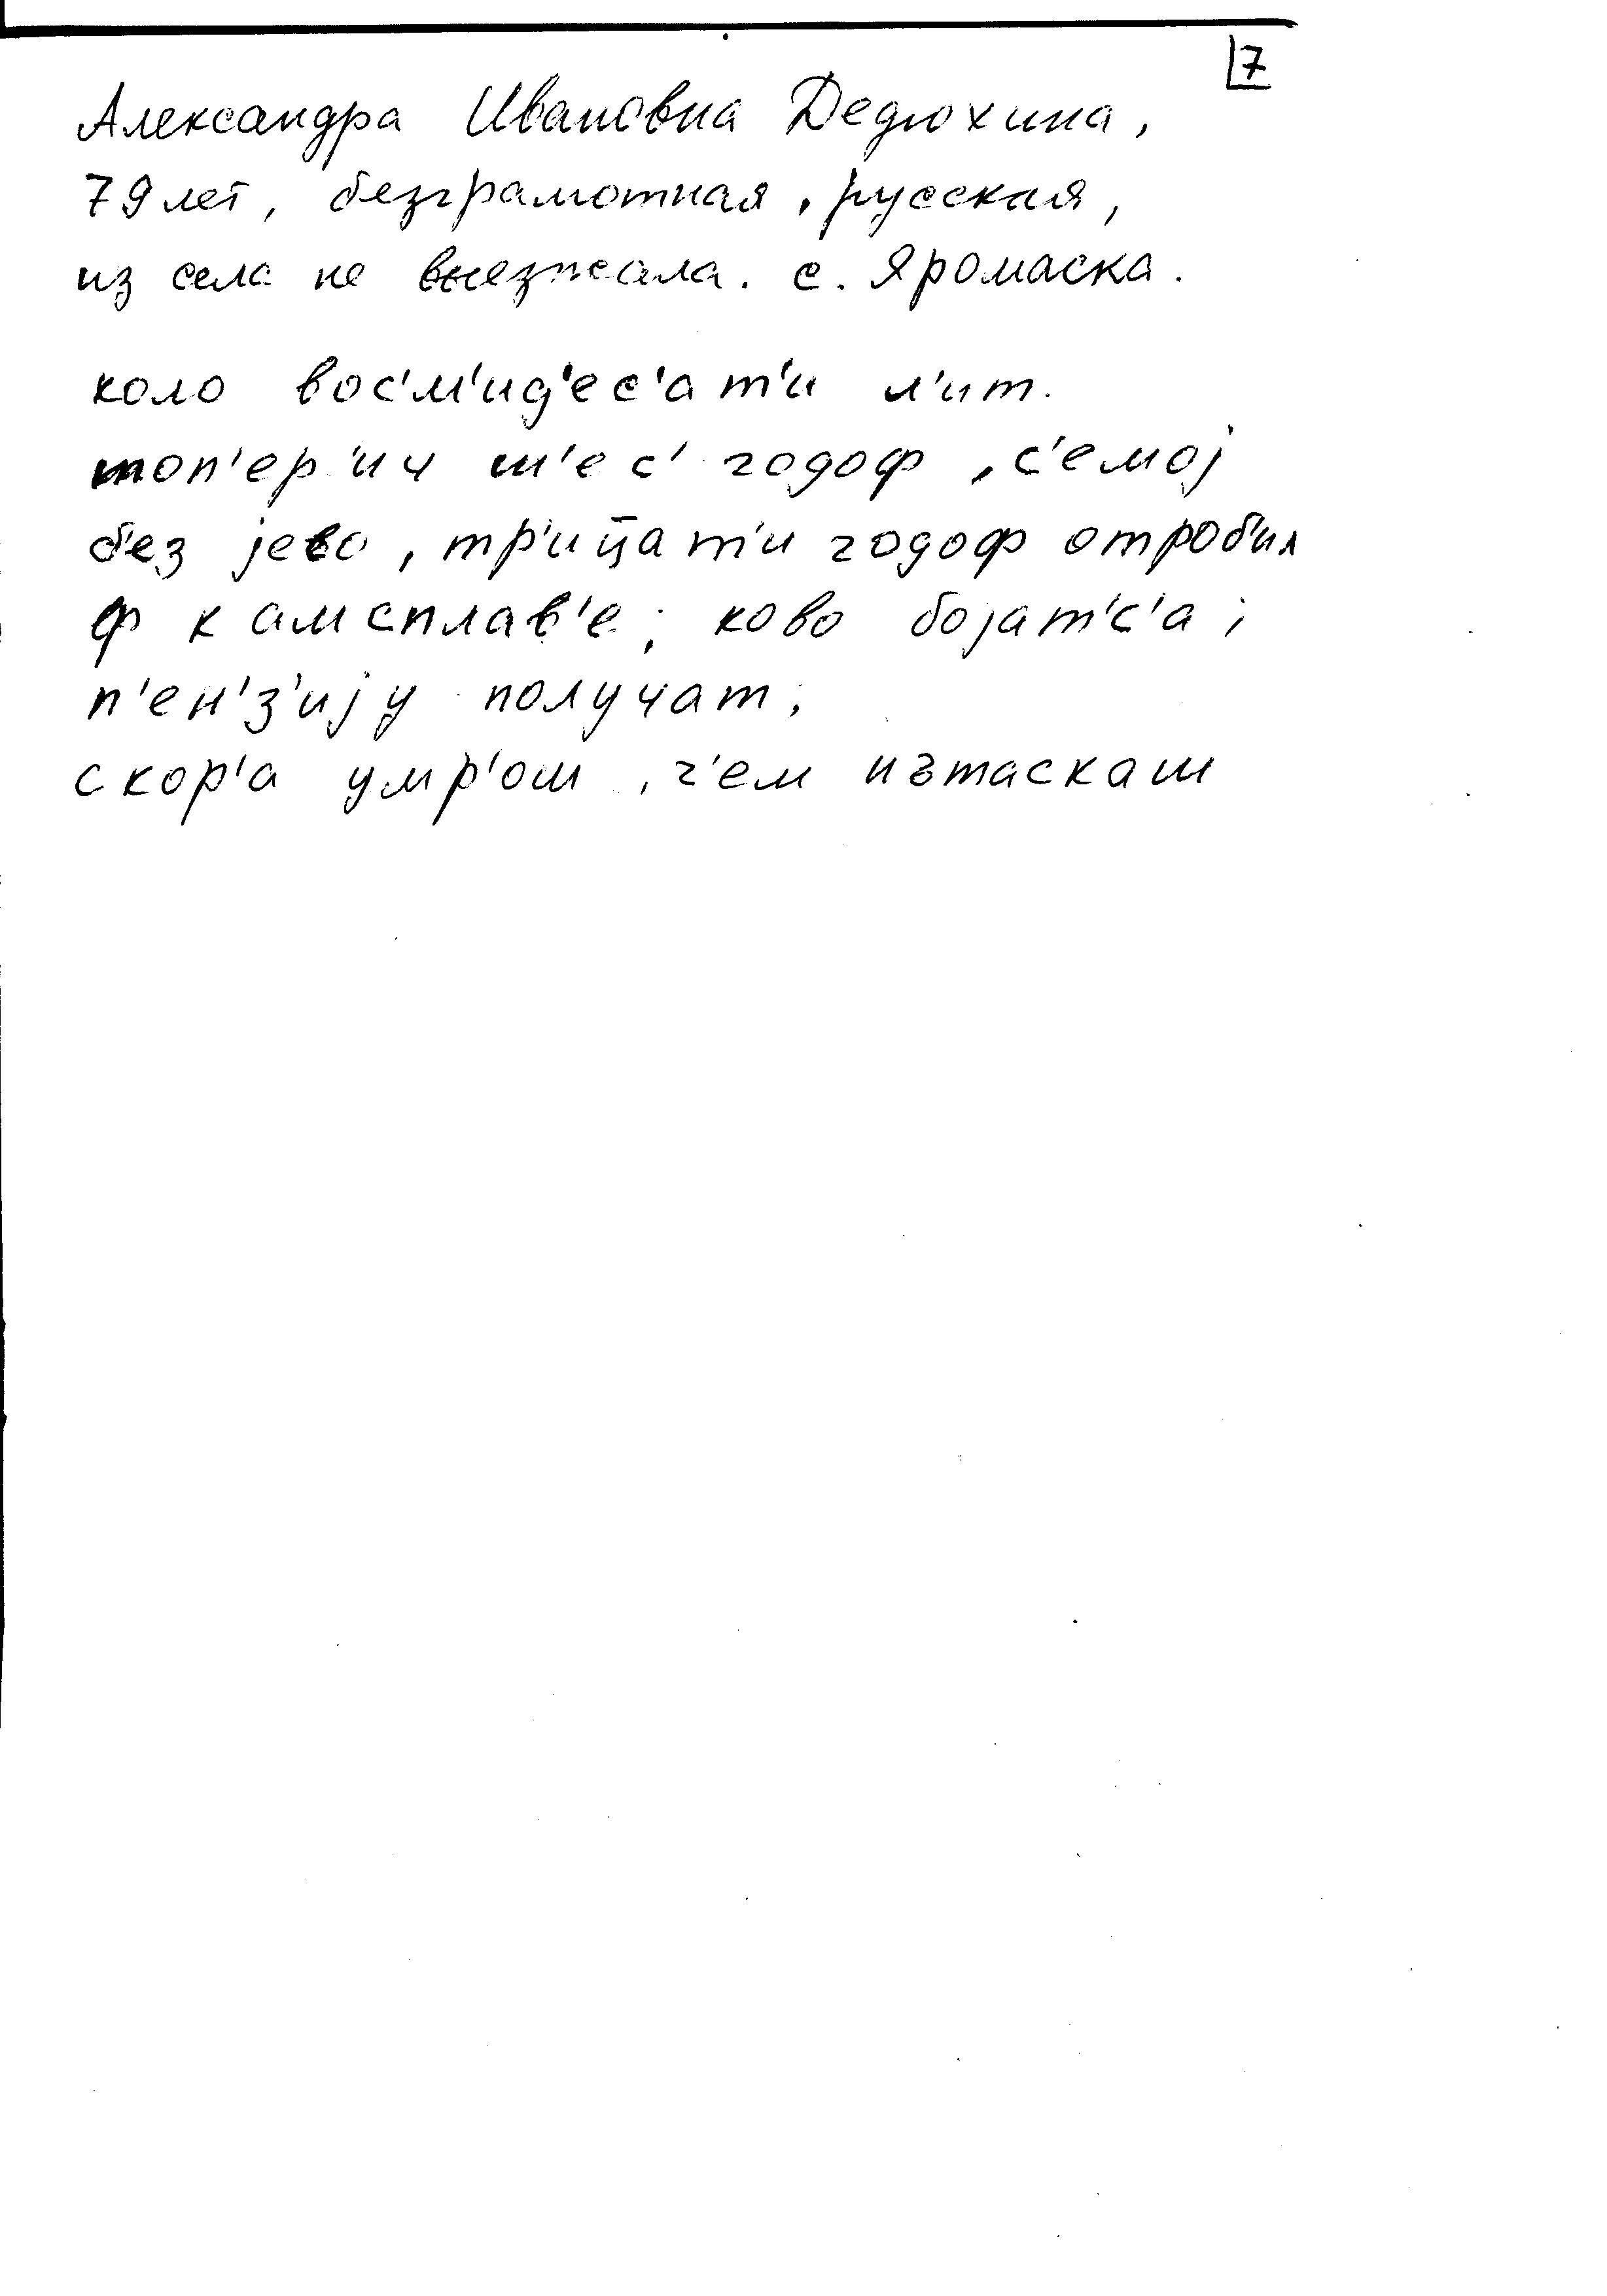 7
Александра Ивановна Дедюхина,
79 лет, безграмотная, русская,
из села не выезжала. с. Яромаска.
коло вос'м'ид'ес'ат'и л'ит.
топ'ер'ич ш'ес' годоф, с'емој
б'ез јево, тр'ип̄ат'и годоф отроб'ил
ф камсплав'е; ково бојат'с'а;
п'ен'з'ију получат;
скор'а умр'ош, ч'ем изтаскаш